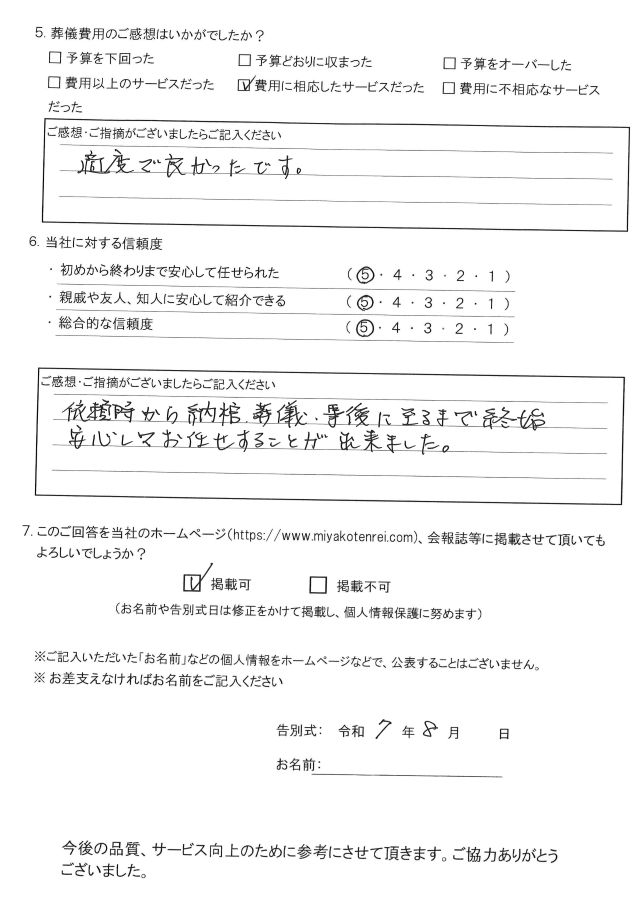 5. 葬儀費用のご感想はいかがでしたか？
□ 予算を下回った □ 予算どおりに収まった □ 予算をオーバーした
□ 費用以上のサービスだった ☑ 費用に相応したサービスだった □ 費用に不相応なサービス
だった
ご感想・ご指摘がございましたらご記入ください
適度で良かったです。
6. 当社に対する信頼度
・初めから終わりまで安心して任せられた （⑤・4・3・2・1）
・親戚や友人、知人に安心して紹介できる （⑤・4・3・2・1）
・総合的な信頼度 （⑤・4・3・2・1）
ご感想・ご指摘がございましたらご記入ください
依頼時から納棺、葬儀・早後に至るまで終始
安心してお任せすることが出来ました。
7. このご回答を当社のホームページ（https://www.miyakotenrei.com）、会報誌等に掲載させて頂いても
よろしいでしょうか？
☑ 掲載可 □ 掲載不可
（お名前や告別式日は修正をかけて掲載し、個人情報保護に努めます）
※ご記入いただいた「お名前」などの個人情報をホームページなどで、公表することはございません。
※ お差支えなければお名前をご記入ください
告別式： 令和 7 年 8 月 日
お名前：
今後の品質、サービス向上のために参考にさせて頂きます。ご協力ありがとう
ございました。